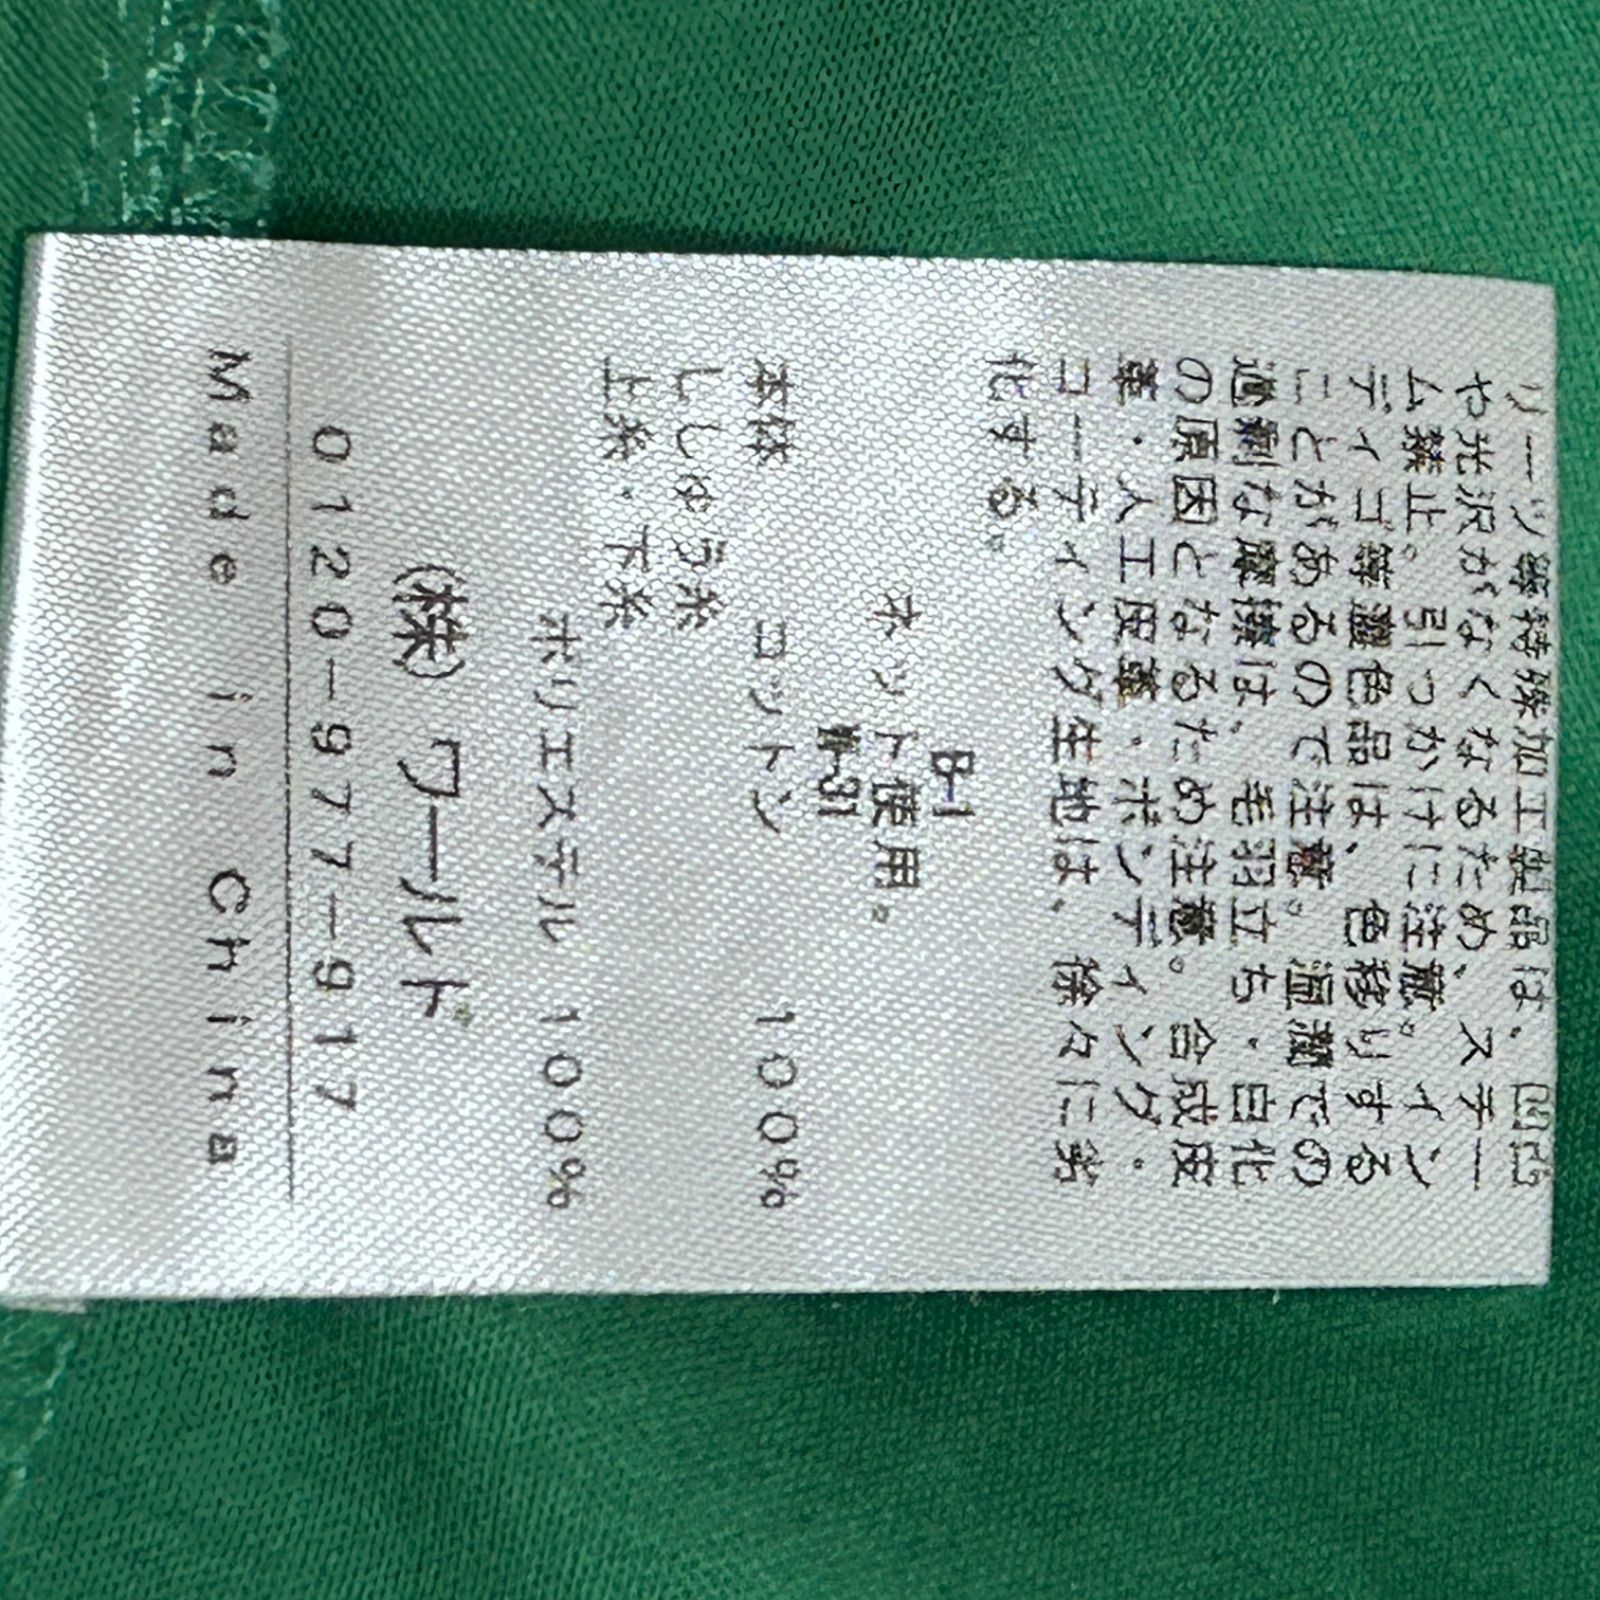 リーツ等特殊加工製品は、凹凸
や光沢がなくなるため、スチー
ム禁止。引っかけに注意。イン
ディゴ等濃色品は、色移りする
ことがあるので注意。湿潤での
過剰な摩擦は、毛羽立ち・白化
の原因となるため注意。合成皮
革・人工皮革・ボンディング・
コーティング生地は、徐々に劣
化する。
B-1
ネット使用。
W-31
本体 コットン 100%
ししゅう糸
上糸・下糸
ポリエステル 100%
(株) ワールド
0120-977-917
Made in China